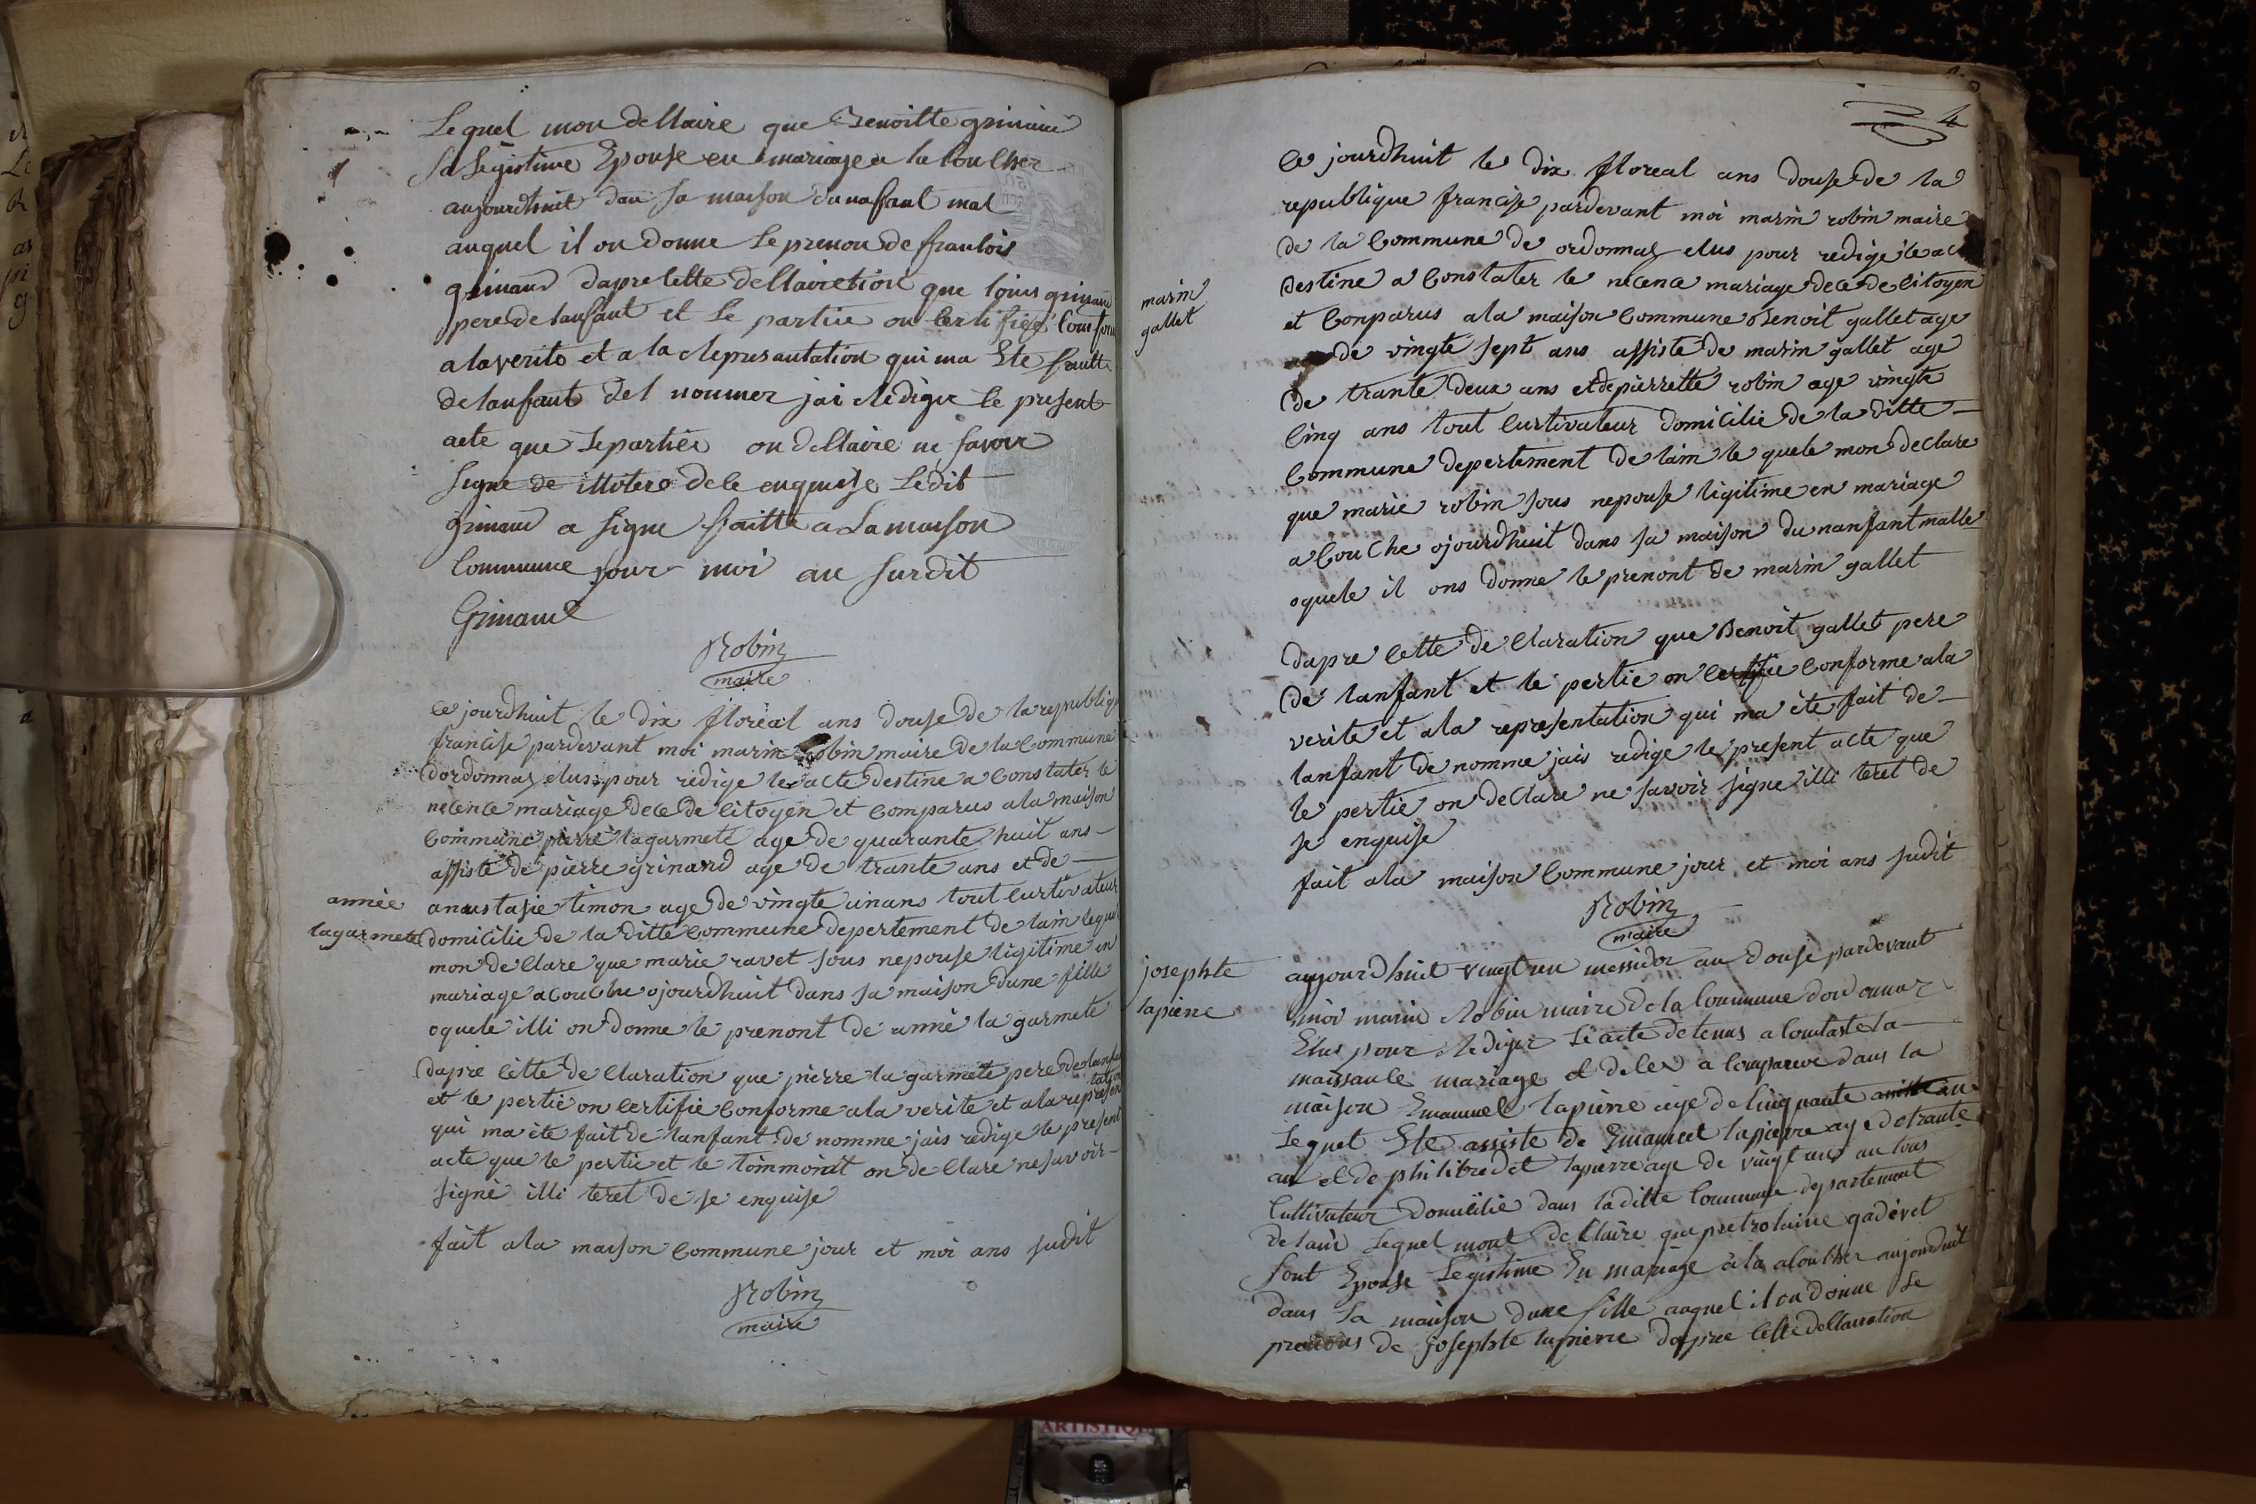 Lequel mon dellaire que Benoitte grimaud
sa Legistime Epouse en mariage a la coucher
aujourdhuit dan sa maison dunafant mal
auquel il on donne le prenon de francois
grimaud dapre cette dellairetion que louis grimaud
pere de lanfant et le partiee on certifiee Conform
a la verite et a la representation qui ma Ete faitte
de lanfant del nommer jai redigee le present
acte que lepartiee on dellaire ne savoir
signe de illotere dele enquise Ledit
grimaud a signe faitte a La maison
Commune jour moi au surdit
Grimaud
Robin
maire
ce jourdhuit le dix floreal ans douse de la republiq
francise pardevant moi marin robin maire de la Commune
dordonnaz elus pour redige le acte destine a Constater le
nécence mariage dece de citoyen et Comparus a la maison
Commune pierre lagarmete age de quarante huit ans
assiste de pierre grinand age de trante ans et de
année
anaustasie timon age de vingte un ans tout curtivateur
lagarmete
domicilie de la ditte Commune depertement de lain lequel
mon declare que marie ravet sous nepouse ligitime en
mariage acouche ojourdhuit dans sa maison dune fille
oquele illi on donne le prenont de anné la garmete
dapre cette de claration que pierre la garmete pere de lanfan
et le pertie on certifie Conforme a la verite et a la represen
tation
qui ma ete fait de lanfant de nomme jais redige le present
acte que le pertie et le toimmoint on de Clare ne savoir
signé illi teret de se enquise
fait a la maison Commune jour et moi ans sudit
Robin
maire
4
ce jourdhuit le dix floreal ans douse de la
republique francise pardevant moi marin robin maire
de la Commune de ordonnaz elus pour redige le ac
destine a Constater le nécence mariage dece de citoyen
marin
gallet
et Conparus a la maison Commune Benoit gallet age
de vingte sept ans assiste de marin gallet age
de trante deux ans et de pierrette robin age vingte
cinq ans tout curtivateur domicilie de la ditte
Commune depertement de lain le quele mon declare
que marie robin sous nepouse ligitime en mariage
a Couche ojourdhuit dans sa maison du nanfant malle
oquele il ons donne le prenont de marin gallet
dapre cette de Claration que Benoit gallet pere
de lanfant et le pertie on certifie Conforme a la
verite et a la representation qui ma ete fait de
lanfant de nomme jais redige le present acte que
le pertie on de Clare ne savoir signe illi teret de
se enquise
fait a la maison Commune jour et moi ans sudit
Robin
maire
josephte
lapierre
aujourdhuit vingt un messidor an douse pardevant
moi marin Robin maire de la Commune dordonnaz
Elus pour rediger le acte detenus a Contaste la
naissance mariage et deles a comparue dans la
maison Emanuel lapierre age de cinquante
Lequel Ete assiste de Emanuel lapierre age de trante
an et de philibre det lapierre age de vingt an tous
Cultivateur domicilie dans la ditte Commune departement
de lain Lequel mont de Claire que
sont Epouse Legistime En mariage a la acoucher aujourdhuit
dans sa maison dune fille auquel il on donne le
prenons de josephte lapierre dapree cette dellaration